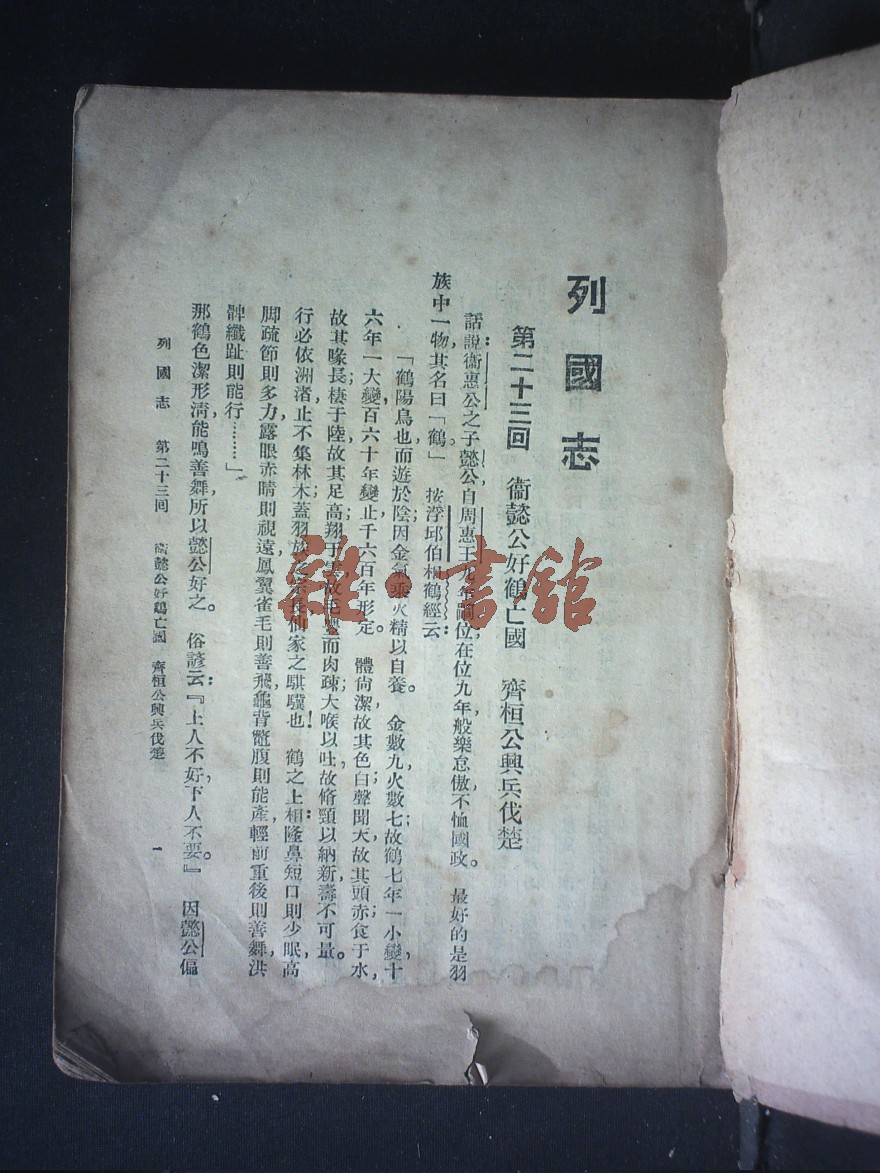 列國志
第二十三回　衞懿公好鶴亡國　齊桓公興兵伐楚
話說：衞惠公之子懿公，自周惠王九年嗣位；在位九年，般樂怠傲，不恤國政。最好的是羽
族中一物，其名曰「鶴」。按浮邱伯相鶴經云：
「鶴，陽鳥也，而遊於陰，因金氣乘火精以自養。金數九，火數七，故鶴七年一小變，十
六年一大變，百六十年變止，千六百年形定。體尙潔，故其色白；聲聞天，故其頭赤；食于水，
故其喙長；棲于陸，故其足高；翔于雲，故毛豐而肉疎。大喉以吐故，脩頸以納新，壽不可量。
行必依洲渚，止不集林木；蓋羽族之宗長，仙家之騏驥也！鶴之上相：隆鼻短口則少眠，高
脚疏節則多力，露眼赤睛則視遠，鳳翼雀毛則善飛，龜背鼈腹則能產，輕前重後則善舞，洪
髀纖趾則能行………」
那鶴色潔形淸，能鳴善舞，所以懿公好之。俗諺云：『上人不好，下人不要。』因懿公偏
列國志　第二十三回　衞懿公好鶴亡國　齊桓公興兵伐楚　一
雜·書館